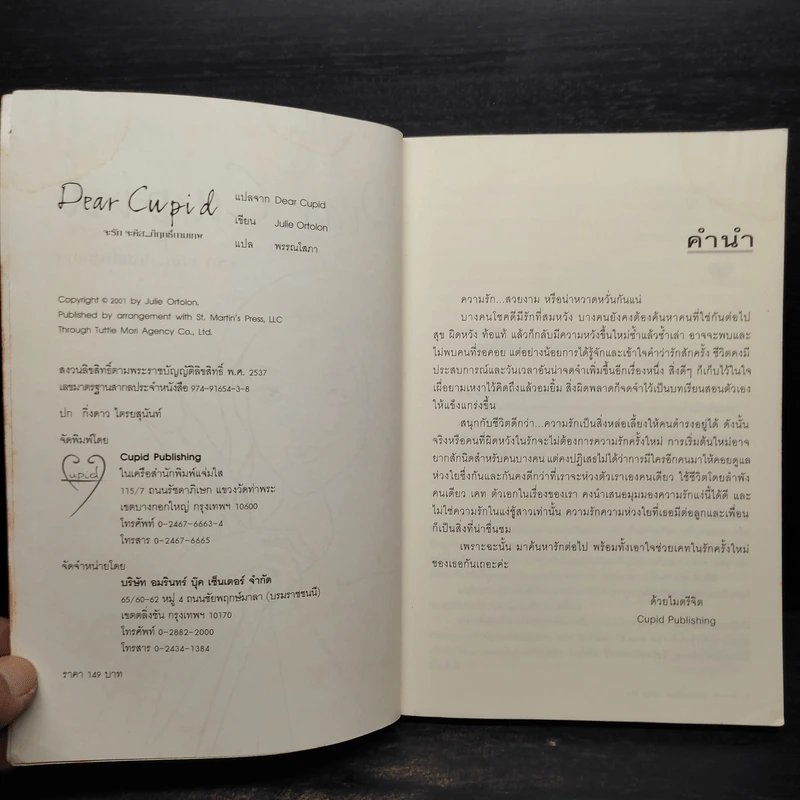 Dear Cupid
จะรัก จะคิส...ภิฤทธิ์กามเทพ
แปลจาก Dear Cupid
เขียน Julie Ortolon
แปล พรรณโสภา
Copyright © 2001 by Julie Ortolon.
Published by arrangement with St. Martin's Press, LLC
Through Tuttle Mori Agency Co., Ltd.
สงวนลิขสิทธิ์ตามพระราชบัญญัติลิขสิทธิ์ พ.ศ. 2537
เลขมาตรฐานสากลประจำหนังสือ 974-91654-3-8
ปก กิ่งดาว ไตรยสุนันท์
จัดพิมพ์โดย
Cupid
Cupid Publishing
ในเครือสำนักพิมพ์แจ่มใส
115/7 ถนนรัชดาภิเษก แขวงวัดท่าพระ
เขตบางกอกใหญ่ กรุงเทพฯ 10600
โทรศัพท์ 0-2467-6663-4
โทรสาร 0-2467-6665
จัดจำหน่ายโดย
บริษัท อมรินทร์ บุ๊ค เซ็นเตอร์ จำกัด
65/60-62 หมู่ 4 ถนนชัยพฤกษ์มาลา (บรมราชชนนี)
เขตตลิ่งชัน กรุงเทพฯ 10170
โทรศัพท์ 0-2882-2000
โทรสาร 0-2434-1384
ราคา 149 บาท
คำนำ
ความรัก...สวยงาม หรือน่าหวาดหวั่นกันแน่
บางคนโชคดีมีรักที่สมหวัง บางคนยังคงต้องค้นหาคนที่ใช่กันต่อไป
สุข ผิดหวัง ท้อแท้ แล้วก็กลับมีความหวังขึ้นใหม่ซ้ำแล้วซ้ำเล่า อาจจะพบและ
ไม่พบคนที่รอคอย แต่อย่างน้อยการได้รู้จักและเข้าใจคำว่ารักสักครั้ง ชีวิตคงมี
ประสบการณ์และวันเวลาอันน่าจดจำเพิ่มขึ้นอีกเรื่องหนึ่ง สิ่งดีๆ ก็เก็บไว้ในใจ
เผื่อยามเหงาไว้คิดถึงแล้วอมยิ้ม สิ่งผิดพลาดก็จดจำไว้เป็นบทเรียนสอนตัวเอง
ให้แข็งแกร่งขึ้น
สนุกกับชีวิตดีกว่า...ความรักเป็นสิ่งหล่อเลี้ยงให้คนดำรงอยู่ได้ ดังนั้น
จริงหรือคนที่ผิดหวังในรักจะไม่ต้องการความรักครั้งใหม่ การเริ่มต้นใหม่อาจ
ยากสักนิดสำหรับคนบางคน แต่คงปฏิเสธไม่ได้ว่าการมีใครอีกคนมาให้คอยดูแล
ห่วงใยซึ่งกันและกันคงดีกว่าที่เราจะห่วงตัวเราเองคนเดียว ใช้ชีวิตโดยลำพัง
คนเดียว เคท ตัวเอกในเรื่องของเรา คงนำเสนอมุมมองความรักแง่นี้ได้ดี และ
ไม่ใช่ความรักในแง่ชู้สาวเท่านั้น ความรักความห่วงใยที่เธอมีต่อลูกและเพื่อน
ก็เป็นสิ่งที่น่าชื่นชม
เพราะฉะนั้น มาค้นหารักต่อไป พร้อมทั้งเอาใจช่วยเคทในรักครั้งใหม่
ของเธอกันเถอะค่ะ
ด้วยไมตรีจิต
Cupid Publishing